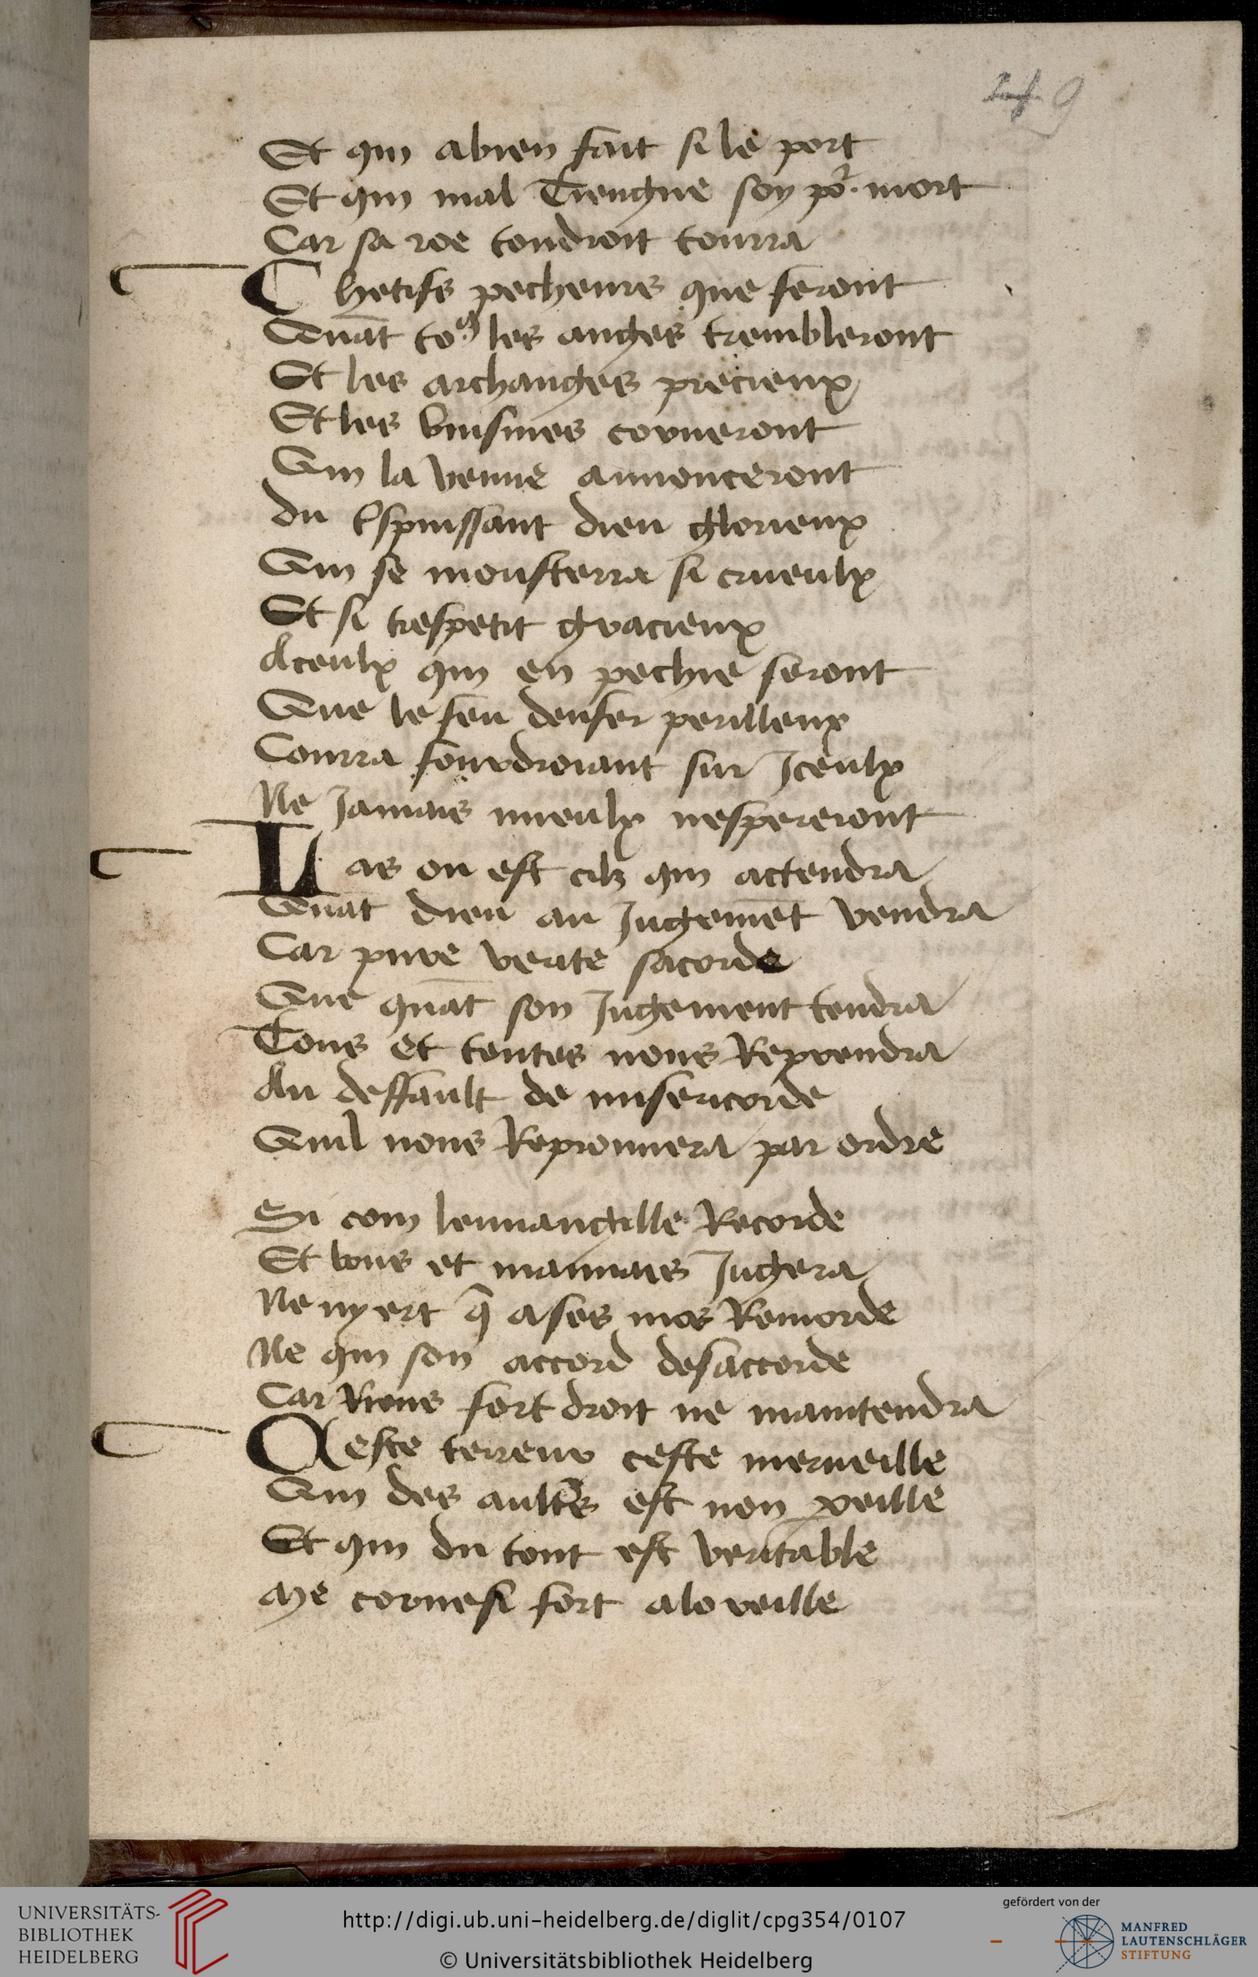 249
Et qui abien fait si le port
Et qui mal Tiengne soy por mort
Car sa roe tondroit tourra
Chetifs pecheurs que seront
Quāt to9 les anges trembleront
Et les archanges precieux
Et les buisines corneront
Qui la venue annonceront
du tspuissant dieu glorieux
Qui se monsterra si crueulx
Et si trespetit gracieux
Aceulx qui en pechie seront
Que le feu denfer perilleux
Courra fouldroiant sur Jceulx
Ne Jamais mieulx nespereront
Las ou est cilz qui actendra
Quāt dieu au Jugemēt vendra
Car pure verite sacorde
Que quāt son Jugement tendra
Tous et toutes nous Reprendra
Au deffault de misericorde
Quil nous Reprouuera par ordre
Si com leuuangille Recorde
Et bons et mauuais Jugera
Ne ny ert q̄ a ses mos Remorde
Ne qui son accord desaccorde
Car Riens fort droit ne maintendra
Ceste terreur ceste merueille
Qui des aultrs est non pareille
Et qui du tout est veritable
Me corne si fort a lo reille
http://digi.ub.uni-heidelberg.de/diglit/cpg354/0107
© Universitätsbibliothek Heidelberg
UNIVERSITÄTS-
BIBLIOTHEK
HEIDELBERG
gefördert von der
MANFRED
LAUTENSCHLÄGER
STIFTUNG